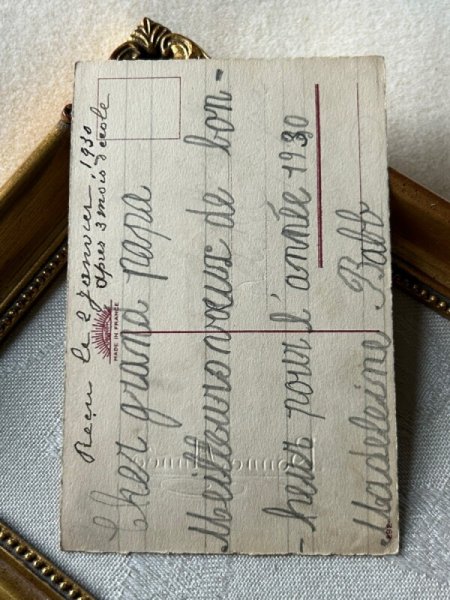 Reçu le 2 Janvier 1930
après 3 mois d'école
MADE IN FRANCE
Cher grand papa
Meilleurs vœux de bon-
-heur pour l'année 1930
Madeleine Babb